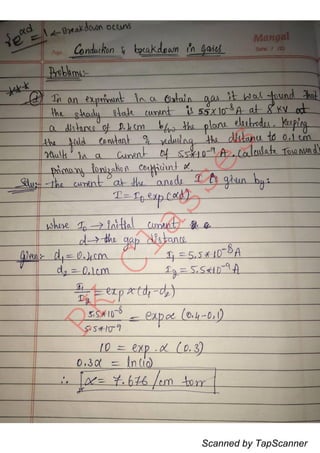 γe^αd = 1 ← Breakdown occurs
Mangal
Page
Date / /20
Conduction & breakdown in gases
Problems:-
In an experiment in a certain gas it was found that
the steady state current is 5.5x10⁻⁸ A at 8 KV at
a distance of 0.4cm b/w the plane electrodes. Keeping
the field constant & reducing the distance to 0.1 cm
results in a current of 5.5x10⁻⁹ A. Calculate Townsend's
primary ionization coefficient α.
Solu:- The current at the anode I is given by:
I = I₀ exp(αd)
where I₀ → initial current
d → the gap distance
Given:- d₁ = 0.4cm I₁ = 5.5x10⁻⁸ A
d₂ = 0.1cm I₂ = 5.5x10⁻⁹ A
I₁/I₂ = exp α(d₁-d₂)
5.5x10⁻⁸/5.5x10⁻⁹ = exp α (0.4-0.1)
10 = exp.α (0.3)
0.3α = ln(10)
∴ α = 7.676 /cm torr
RK Classes
Scanned by TapScanner